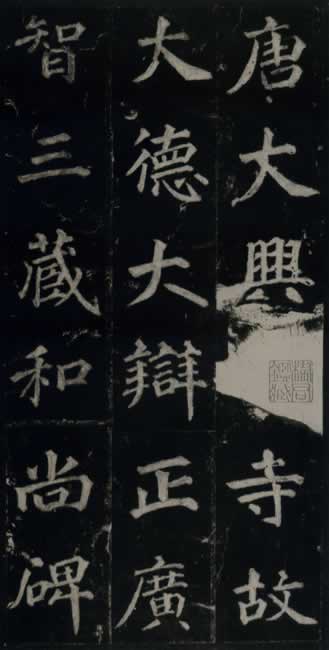 唐大興寺故
大德大辯正廣
智三藏和尚碑